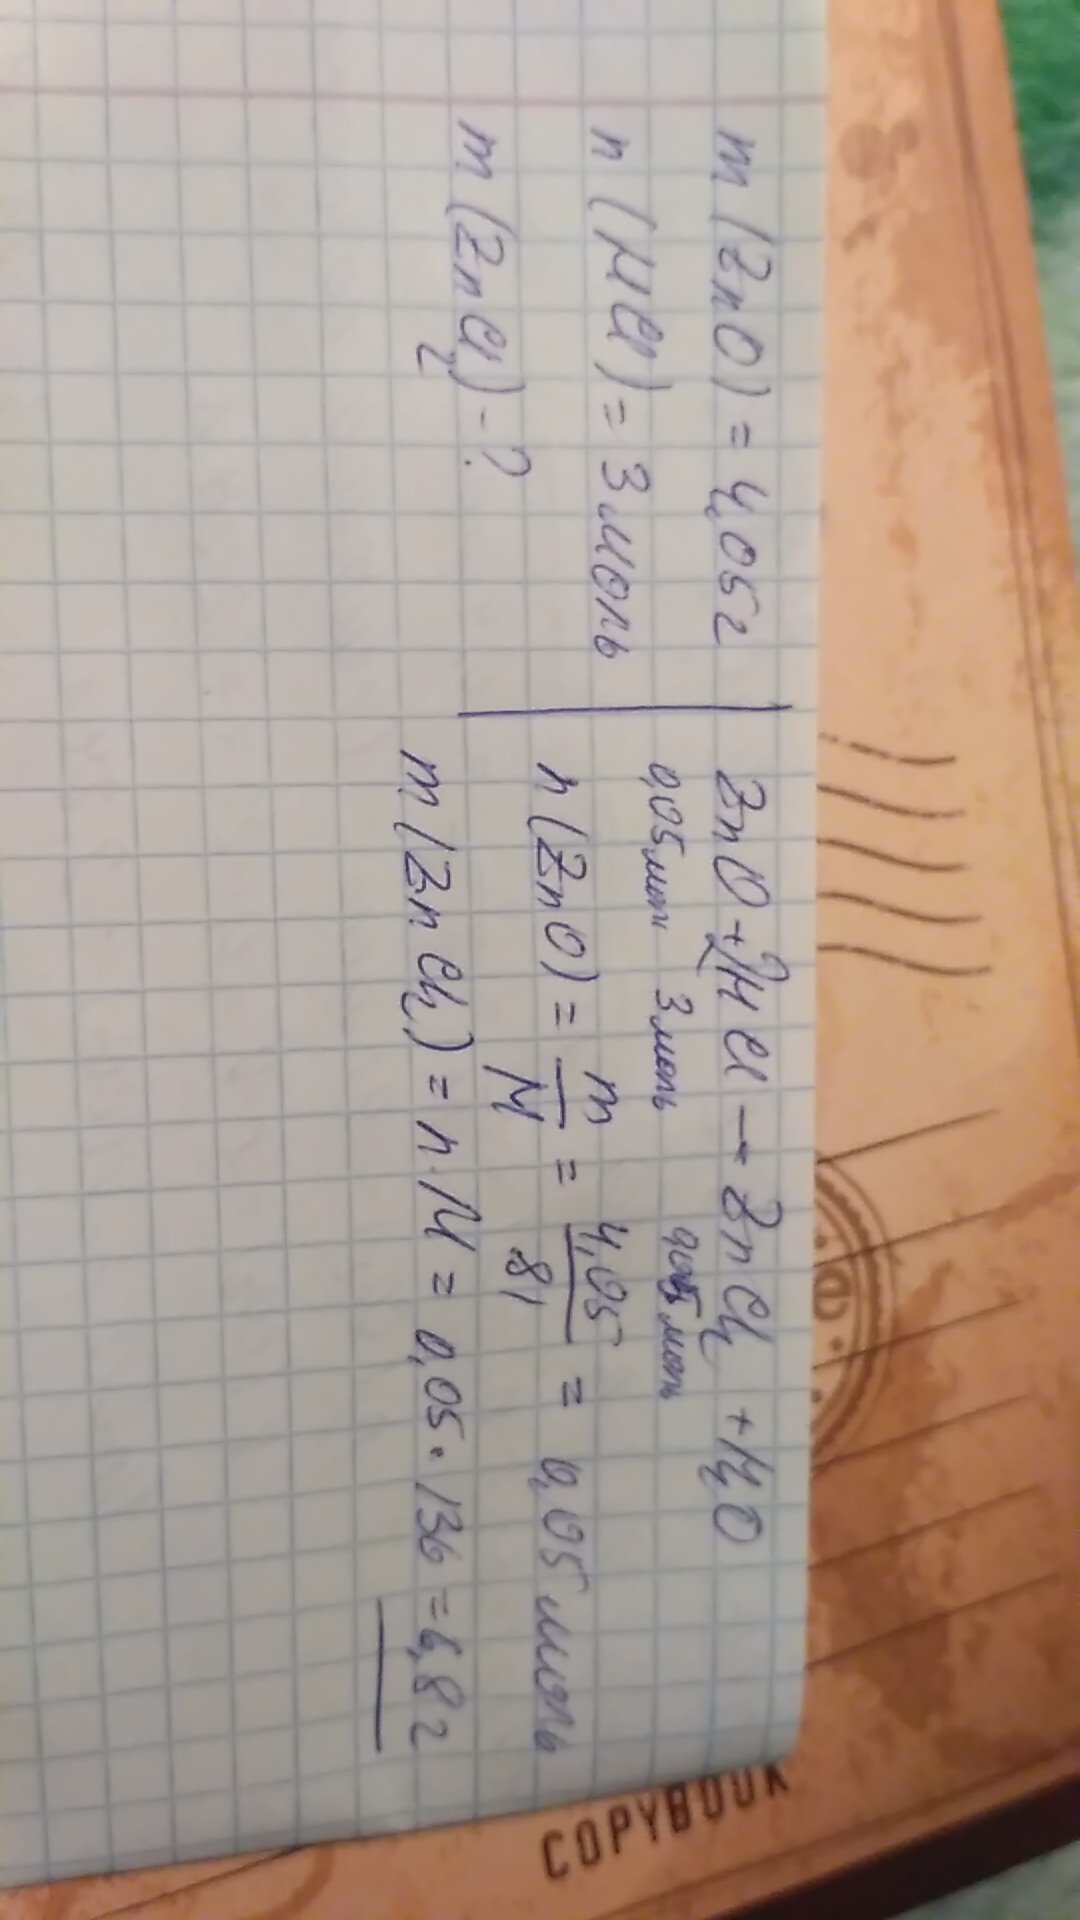 m (ZnO) = 4,05г
n (HCl) = 3 моль
m (ZnCl₂) - ?
ZnO + 2HCl → ZnCl₂ + H₂O
0,05 моль 3 моль 0,05 моль
n (ZnO) = m/M = 4,05/81 = 0,05 моль
m (ZnCl₂) = n · M = 0,05 · 136 = 6,8 г
COPYBOOK